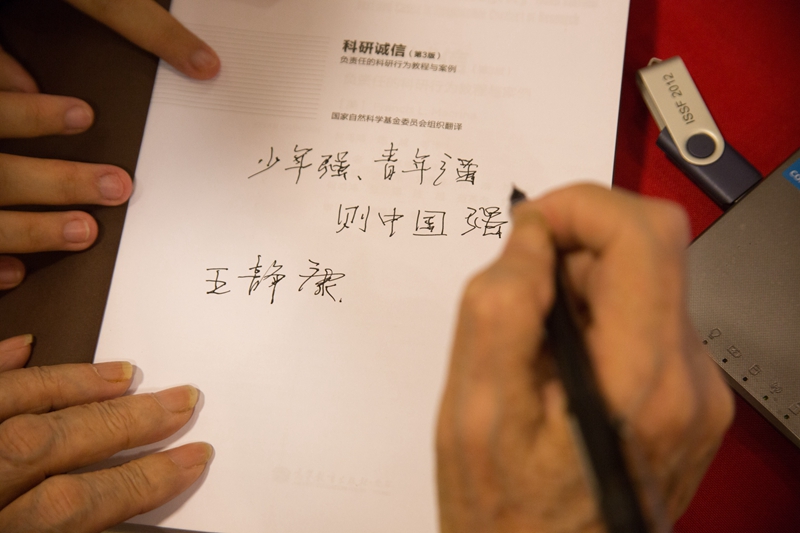 科研诚信(第3版)
负责任的科研行为教程与案例
国家自然科学基金委员会组织翻译
少年强、青年强
则中国强
王静康
ISSF 2012